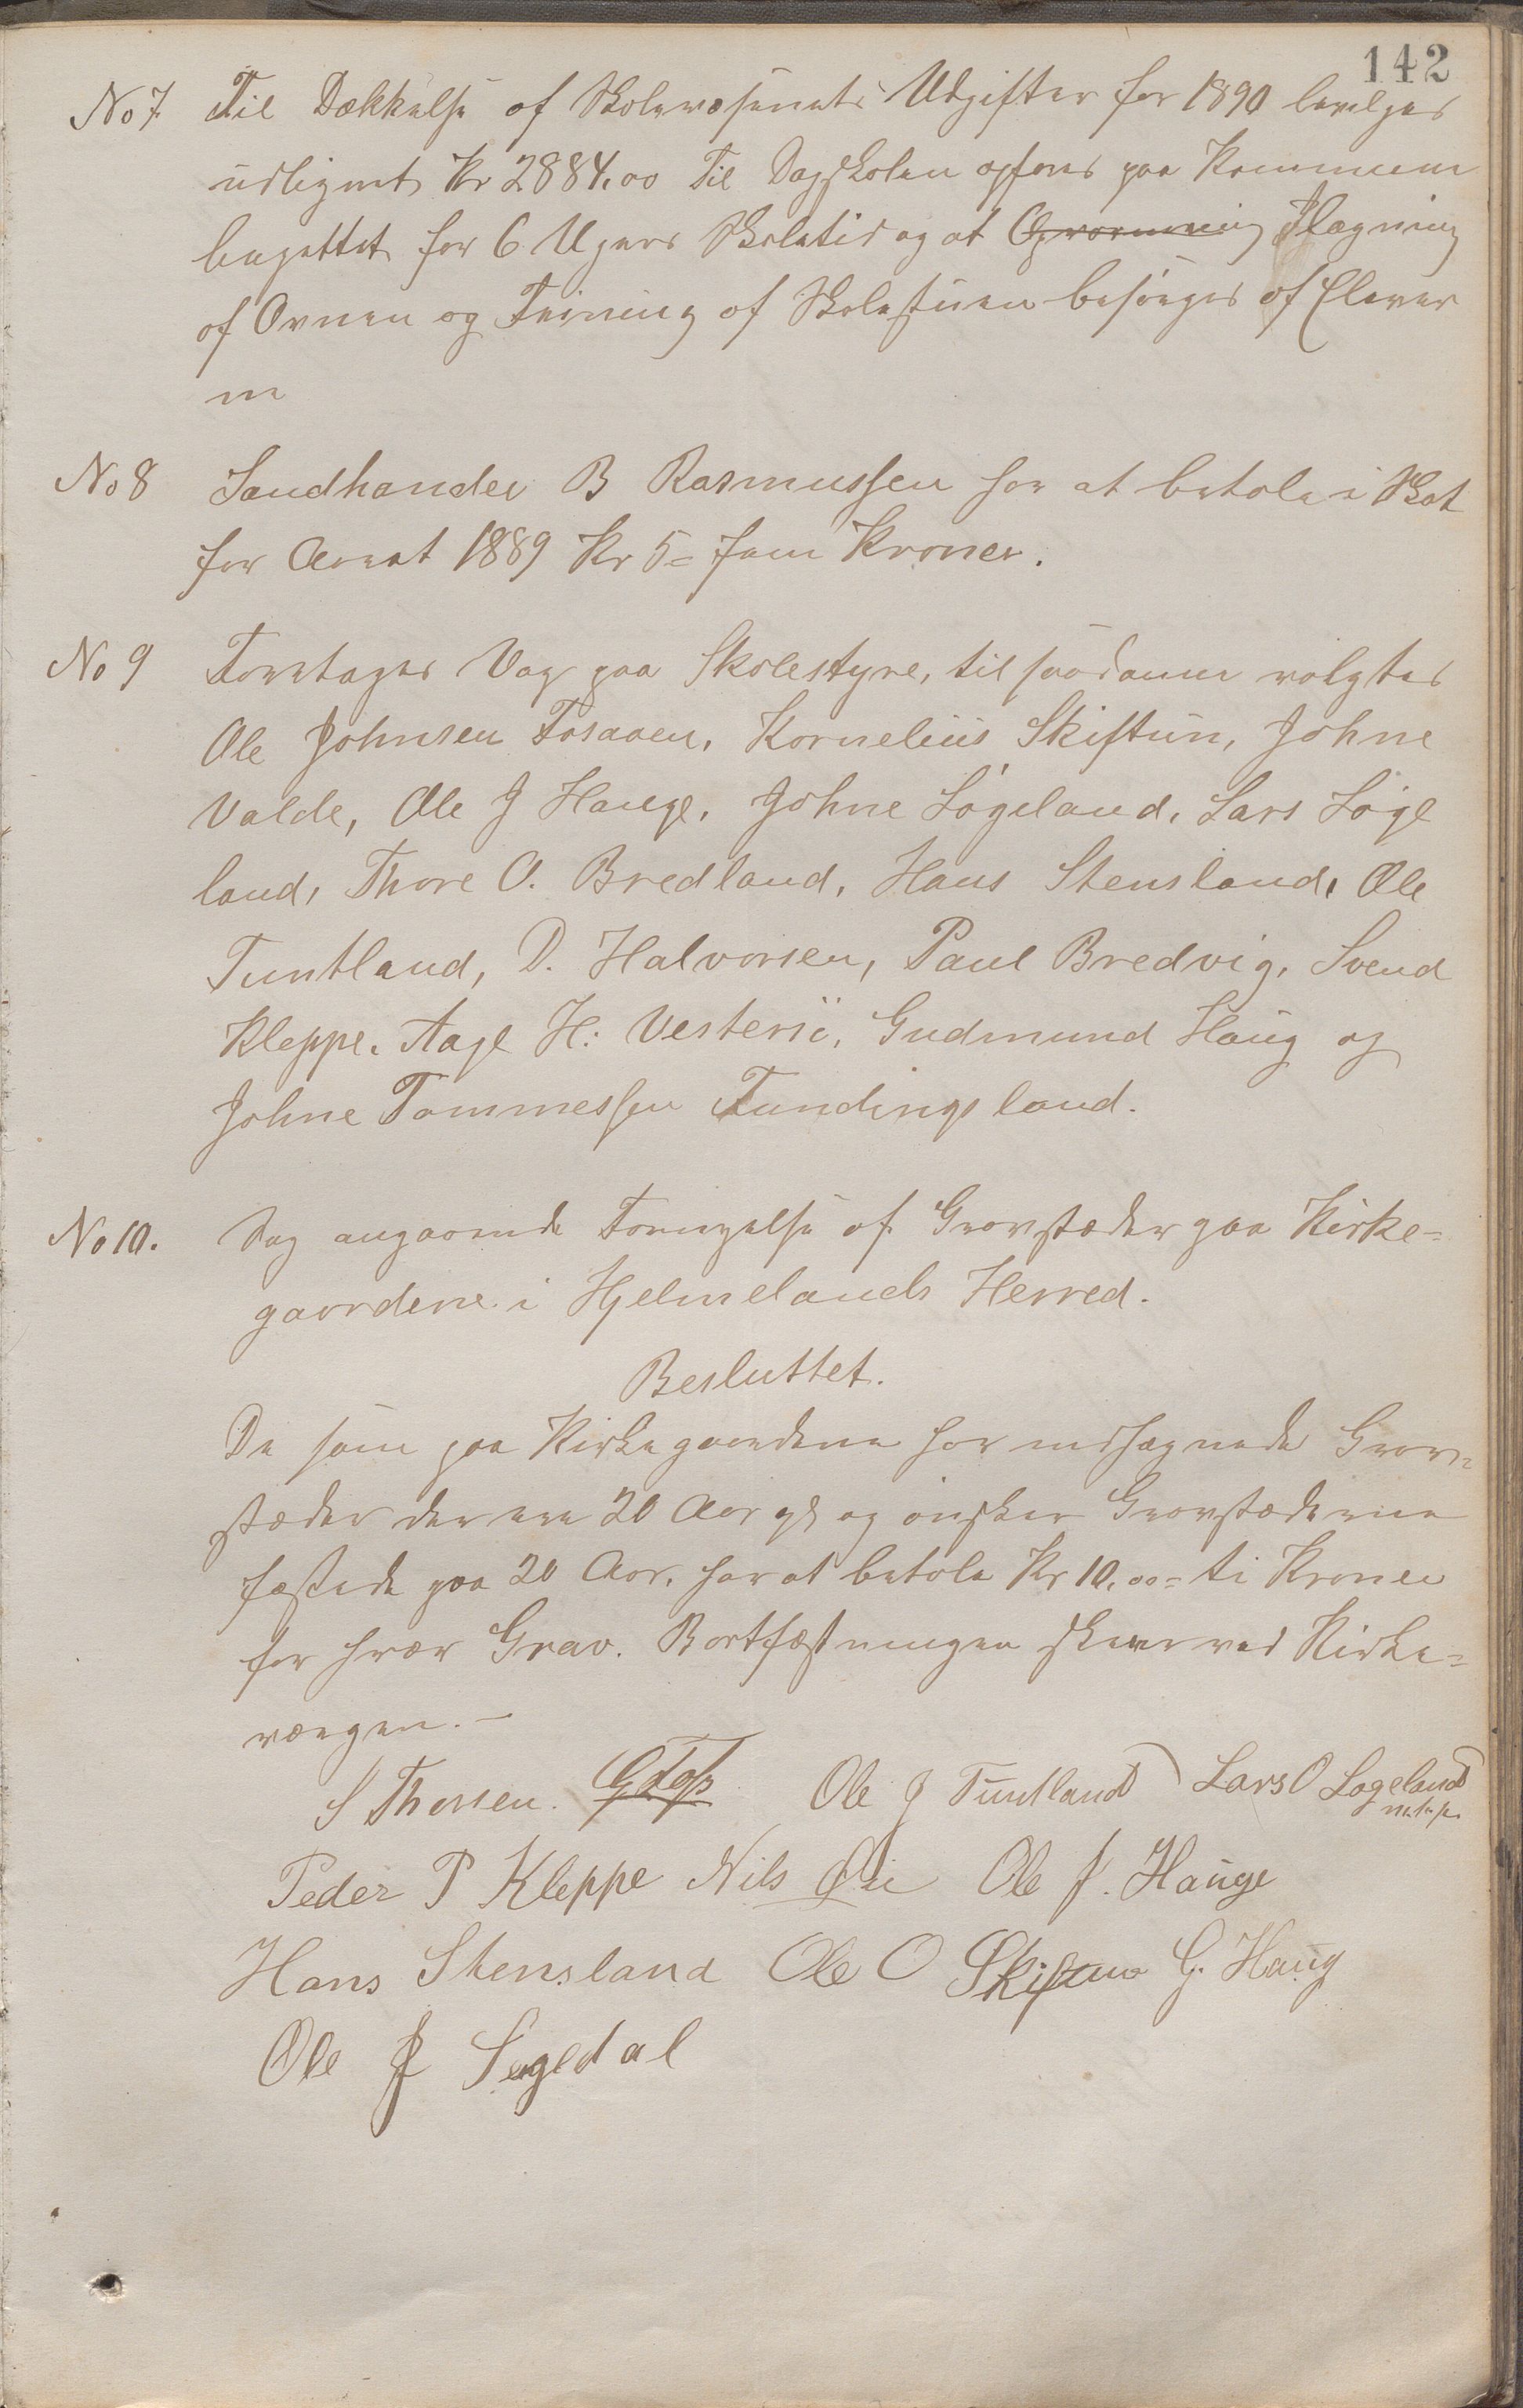 142
No 7. Til Dækkelse af Skolevæsenets Udgifter for 1890 bevilges
udlignet Kr 2884.00 Til Dagskolen opføres paa Kommune
bugettet for 6 Ugers Skoletid og at Opvarmning Ilægning
af Ovnen og Feining af Skolestuen besørges af Elever
ne
No 8 Landhandler B Rasmussen har at betale i Skat
for Aaret 1889 Kr 5 = fem Kroner.
No 9 Foretages Valg paa Skolestyre, til saadanne valgtes
Ole Johnsen Fosaaen, Kornelius Skiftun, Johne
Valde, Ole J Hauge, Johne Løgeland, Lars Løge
land, Thore O. Bredland, Hans Stensland, Ole
Tuntland, D. Halvorsen, Paul Bredvig, Svend
Kleppe, Aage H: Vestersi, Gudmund Haug og
Johne Tommessen Fundingsland.
No 10. Sag angaaende Fornyelse af Gravstæder paa Kirke-
gaardene i Hjelmelands Herred.
Besluttet.
De som paa Kirkegaardene har indhegnede Grav-
stæder der ere 20 Aar gl og ønsker Gravstæderne
fæstede paa 20 Aar, har at betale Kr 10,00 = ti Kroner
for hver Grav. Bortfæstningen skeer ved Kirke-
værgen. -
S Thorsen. Ole J Tuntland Lars O Løgeland
m.f.p.
Peder P Kleppe Nils Øie Ole J. Hauge
Hans Stensland Ole O Skiftun G. Haug
Ole J Segedal